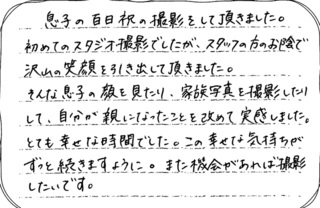 息子の百日祝の撮影をして頂きました。
初めてのスタジオ撮影でしたが、スタッフの方のお陰で
沢山の笑顔を引き出して頂きました。
そんな息子の顔を見たり、家族写真を撮影したり
して、自分が親になったことを改めて実感しました。
とても幸せな時間でした。この幸せな気持ちが
ずっと続きますように。また機会があれば撮影
したいです。